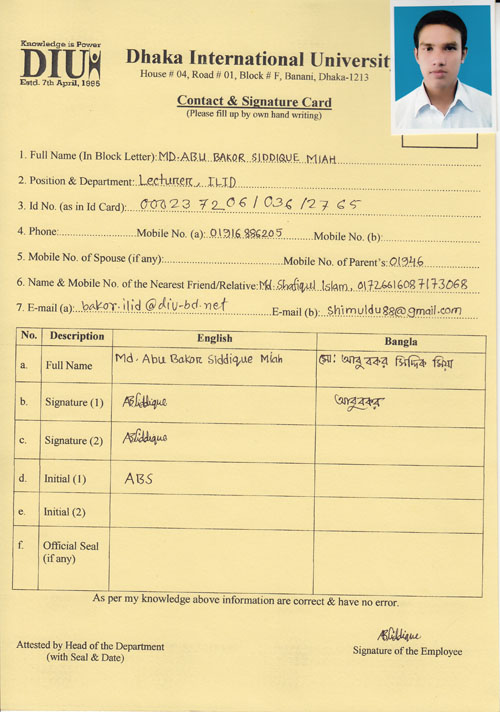 Knowledge is Power
DIU
Estd. 7th April, 1995
Dhaka International Universit
House # 04, Road # 01, Block # F, Banani, Dhaka-1213
Contact & Signature Card
(Please fill up by own hand writing)
1. Full Name (In Block Letter): MD. ABU BAKOR SIDDIQUE MIAH
2. Position & Department: Lecturer, ILID
3. Id No. (as in Id Card): 000237206/036/2765
4. Phone: Mobile No. (a): 01916886205 Mobile No. (b):
5. Mobile No. of Spouse (if any): Mobile No. of Parent's: 01946
6. Name & Mobile No. of the Nearest Friend/Relative: Md. Shafiqul Islam, 01726616087173068
7. E-mail (a): bakor.ilid@diu-bd.net E-mail (b): shimuldu88@gmail.com
No. Description English Bangla
a. Full Name Md. Abu Bakor Siddique Miah মো: আবু বকর সিদ্দিক মিয়া
b. Signature (1) ABSiddique আবুবকর
c. Signature (2) ABSiddique
d. Initial (1) ABS
e. Initial (2)
f. Official Seal
(if any)
As per my knowledge above information are correct & have no error.
ABSiddique
Attested by Head of the Department Signature of the Employee
(with Seal & Date)